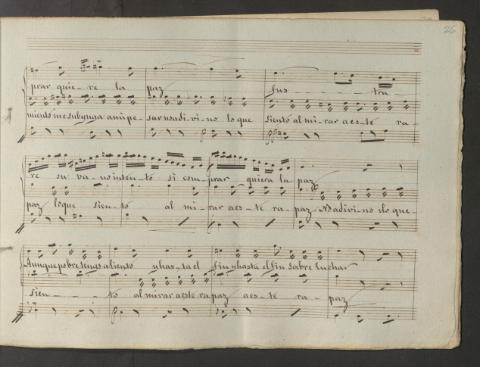 26
prar quie - re la paz Fus - - tra
miento me subyuga a mi pe - sar no adi - vi - no lo que siento al mi - rar a es - te ra -
re su va - no inten - to si com - prar quiera la paz
paz lo que sien - to al mi - rar a es - te ra - paz No adivi - no lo que
Aunque pobre tengo aliento y has - ta el fin y hasta el fin sabre luchar
sien - - - to al mirar a este rapaz a es - te ra - paz